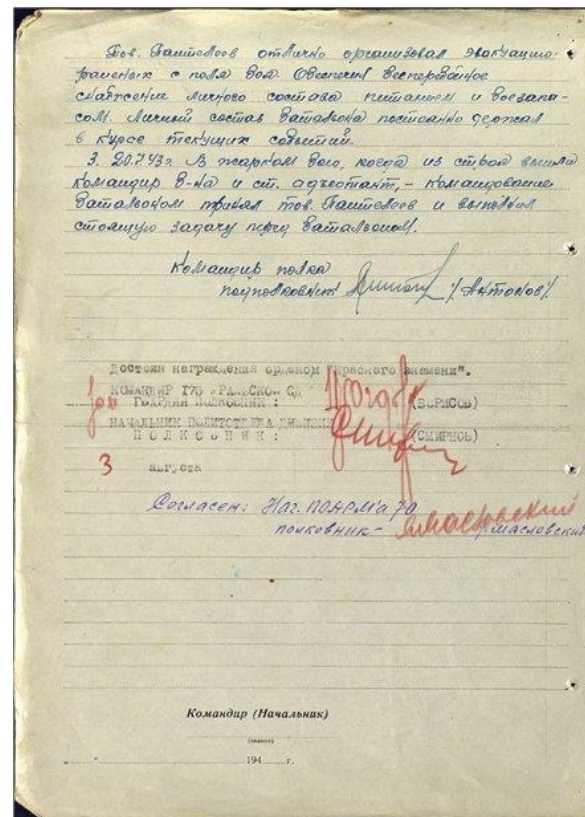 Тов. Пантелеев отлично организовал эвакуацию
раненых с поля боя. Обеспечил бесперебойное
снабжение личного состава питанием и боезапа-
сом. Личный состав батальона постоянно держал
в курсе текущих событий.
3. 20.7.43г. В жарком бою, когда из строя вышли
командир б-на и ст. адъютант, - командование
батальоном принял тов. Пантелеев и выполнил
стоящую задачу перед батальоном.
Командир полка
подполковник /Антонов/
Достоин награждения орденом "Красного Знамени".
КОМАНДИР 175 УРАЛЬСКОЙ СД
ГВАРДИИ ПОЛКОВНИК: (БОРИСОВ)
НАЧАЛЬНИК ПОЛИТОТДЕЛА ДИВИЗИИ
ПОЛКОВНИК: (СМИРНОВ)
3 августа
Согласен: Нач. ПОАРМ'а 70
полковник - Масловский /Масловский
Командир (Начальник)
(звание)
194 г.